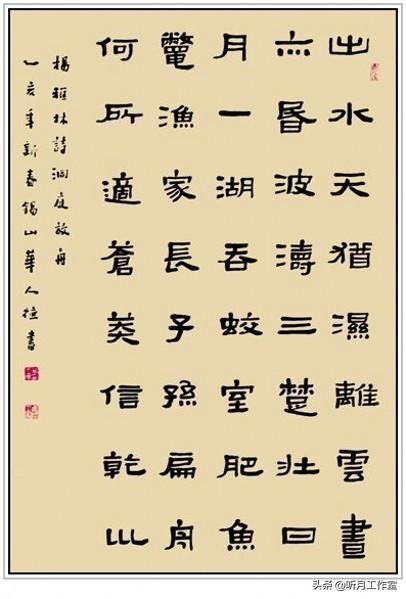 出水天猶濕離雲晝
亦昏波濤三楚壯日
月一湖吞蛟室肥魚
鼈漁家長子孫扁舟
何所適蒼莽信乾巛
楊林詩洞庭放舟
乙亥年新春錫山華人德書
头条 @听月工作室